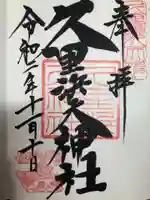 奉拝
久里浜天神社
令和二年十一月十日